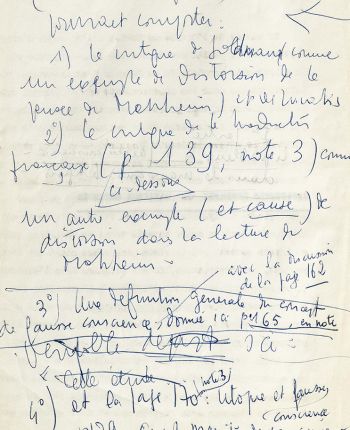 pourrait comporter :
1) la critique de Goldmann comme
un exemple de distorsion de la
pensée de Mannheim et de Lukacs
2) la critique de la traduction
française (p 139, note 3) comme
ci-dessous
un autre exemple (et cause) de
distorsion dans la lecture de
Mannheim.
avec la discussion
de la page 162
3°) Une définition générale du concept
de fausse conscience, donnée ici p 165, en note
Véritable départ ici :
Cette étude
4°) et la page 170 note 3) : Utopie et fausse
conscience